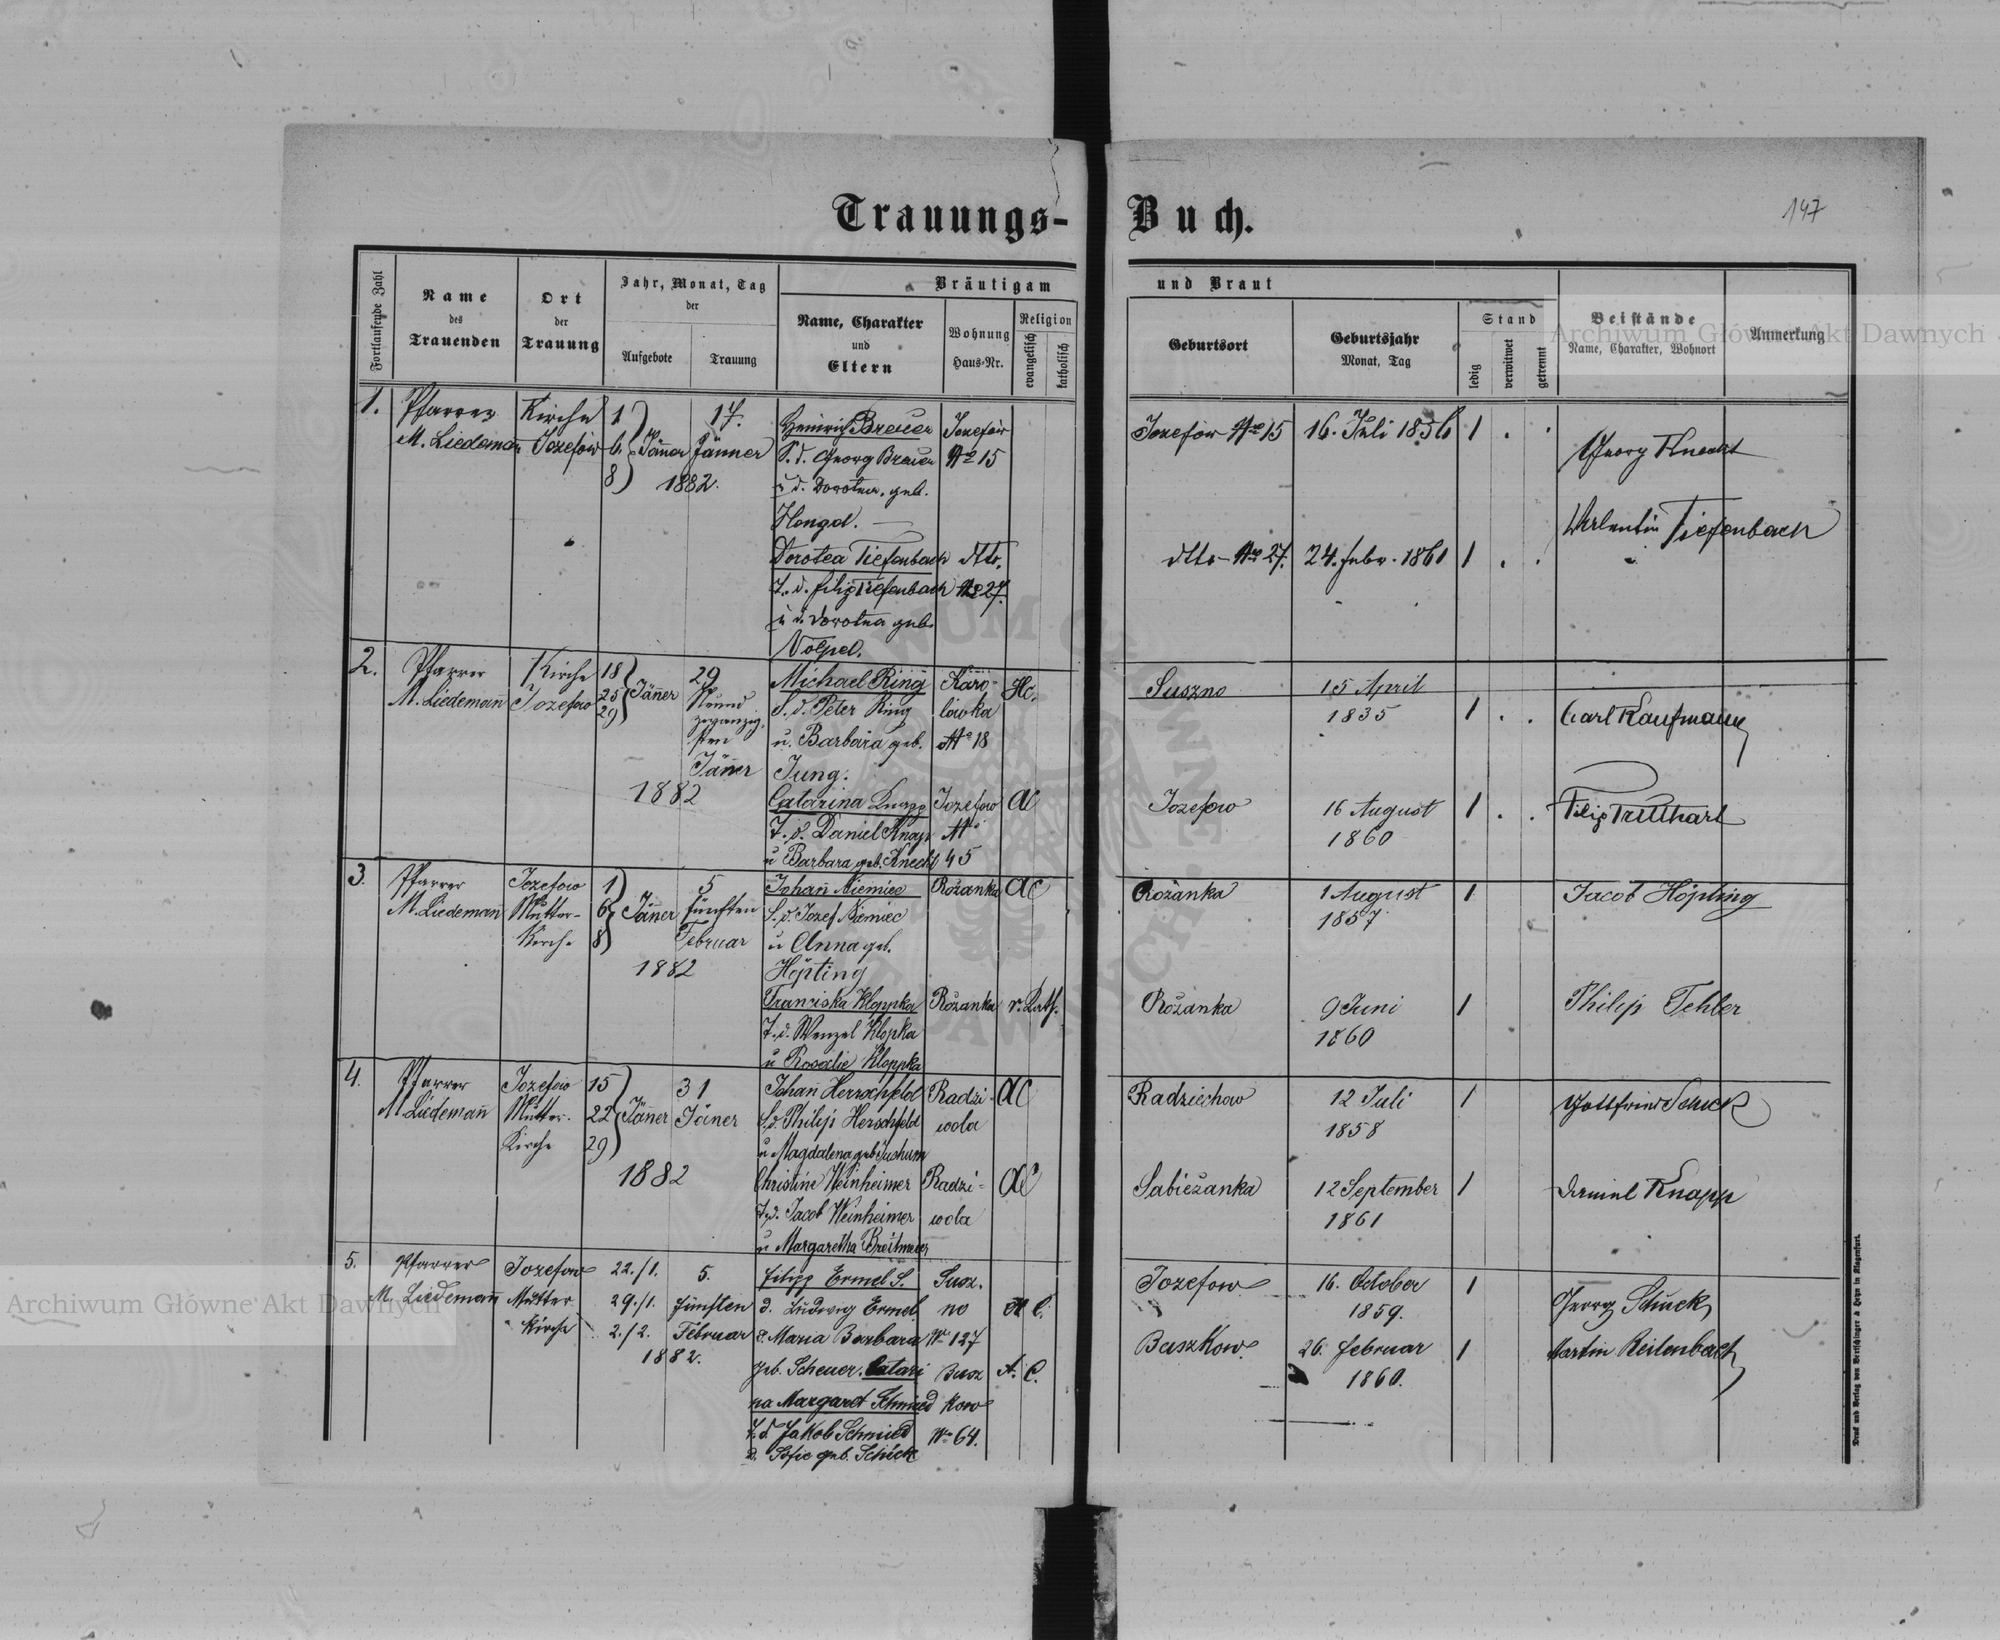 Trauungs-Buch.
147
Fortlaufende Zahl
Name des Trauenden
Ort der Trauung
Jahr, Monat, Tag der
Aufgebote
Trauung
Bräutigam und Braut
Name, Charakter und Eltern
Wohnung Haus-Nr.
Religion
evangelisch
katholisch
Geburtsort
Geburtsjahr Monat, Tag
Stand
ledig
verwitwet
getrennt
Beistände
Name, Charakter, Wohnort
Anmerkung
1.
Pfarrer
M. Liedemañ
Kirche
Jozefow
1
6
8
Jäner
17.
Jänner
1882.
Heinrich Breuer
S. d. Georg Breuer
u d. Dorotea, geb.
Jozefow
No 15
Dorotea Tiefenbach
T. d. Filip Tiefenbach
u d. Dorotea geb.
Volpel.
dtto.
No 27.
Jozefow No 15
16. Juli 1856
1
dtto No 27.
24. Febr. 1861
1
Georg Knecht
Walentin Tiefenbach
2.
Pfarrer
M. Liedemañ
Kirche
Jozefow
18
25
29
Jäñer
29
Neund
zwanzig
sten
Jäñer
1882
Michael Ring
S. d. Peter Ring
u. Barbara geb.
Jung.
Karo-
lowka
No 18
HC.
Catarina Knapp
T. d. Daniel Knapp
u Barbara geb. Knecht
Jozefow
No
45
AC
Suszno
15 April
1835
1
Jozefow
16 August
1860
1
Carl Kaufmann
Filip Tritthart
3.
Pfarrer
M. Liedemañ
Jozefow
Mutter-
Kirche
1
6
8
Jäner
5
fünften
Februar
1882
Johañ Niemiec
S. d. Jozef Niemiec
u Anna geb.
Höpting
Rožanka
AC
Franziska Kloppka
T. d. Wenzel Klopka
u Rosalie Kloppka
Rožanka
r. Kath.
Rožanka
1 August
1857
1
Rožanka
9 Juni
1860
1
Jacob Höpting
Philip
4.
Pfarrer
M Liedemañ
Jozefow
Mutter-
Kirche
15
22
29
Jäñer
31
Jäner
1882
Johañ Herrschfeld
S. d. Philip Herschfeld
u Magdalena geb
Radzi-
wola
AC
Christine Weinheimer
T. d. Jacob Weinheimer
u Margaretha Breitmeier
Radzi-
wola
AC
Radziechow
12 Juli
1858
1
Sabiežanka
12 September
1861
1
Gottfried Schick
Daniel Knapp
5.
Pfarrer
M. Liedemañ
Jozefow
Mutter
Kirche
22./1.
29./1.
2./2.
5.
fünften
Februar
1882.
Filipp Ermel S.
d. Ludwig Ermel
& Maria Barbara
geb. Scheuer. Catari
na Margaret Schmied
T. d. Jakob Schmied
& Sofie geb. Schick
Susz.
no
No 127
Busz
kow
No 64.
A C.
A. C.
Jozefow
16. October
1859.
1
Buszkow.
26. februar
1860.
1
Georg Schick
Martin Reitenbach
Druck und Verlag von Bertschinger & Heyn in Klagenfurt.
Archiwum Główne Akt Dawnych
Archiwum Główne Akt Dawnych